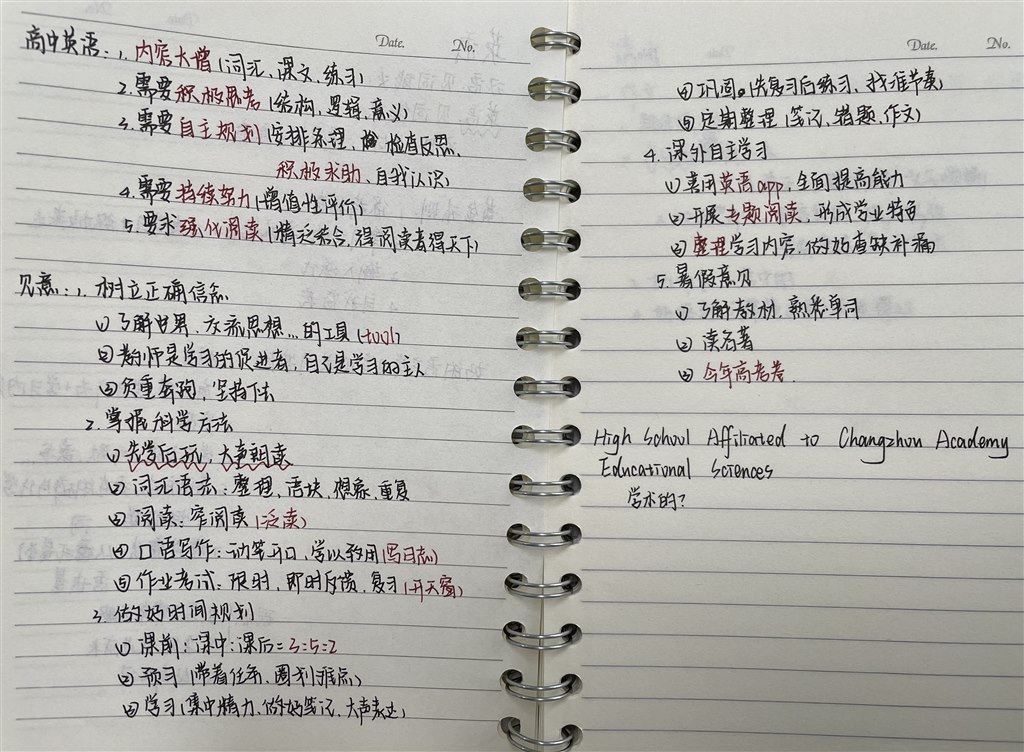 Date. No.
高中英语：1. 内容大增（词汇、课文、练习）
2. 需要积极思考（结构、逻辑、意义）
3. 需要自主规划（安排条理、检查反思、
积极求助、自我认识）
4. 需要持续努力（增值性评价）
5. 要求强化阅读（精泛结合，得阅读者得天下）
见意：1. 树立正确信念
① 了解世界、交流思想…的工具（tool）
② 教师是学习的促进者，自己是学习的主人
③ 负重奔跑，坚持下去
2. 掌握科学方法
① 先学后玩，大声朗读
② 词汇语法：整理，语块，想象，重复
③ 阅读：窄阅读（泛读）
④ 口语写作：动笔开口，学以致用（写日志）
⑤ 作业考试：限时，即时反馈，复习（开天窗）
3. 做好时间规划
① 课前：课中：课后=3:5:2
② 预习（带着任务，圈划难点）
③ 学习（集中精力、做好笔记，大声表达）
Date. No.
④ 巩固（先复习后练习、找准节奏）
⑤ 定期整理（笔记、错题、作文）
4. 课外自主学习
① 善用英语app，全面提高能力
② 开展专题阅读，形成学业特色
③ 整理学习内容，做好查缺补漏
5. 暑假意见
① 了解教材，熟悉单词
② 读名著
③ 今年高考卷.
High School Affiliated to Changzhou Academy
Educational Sciences
学术的？